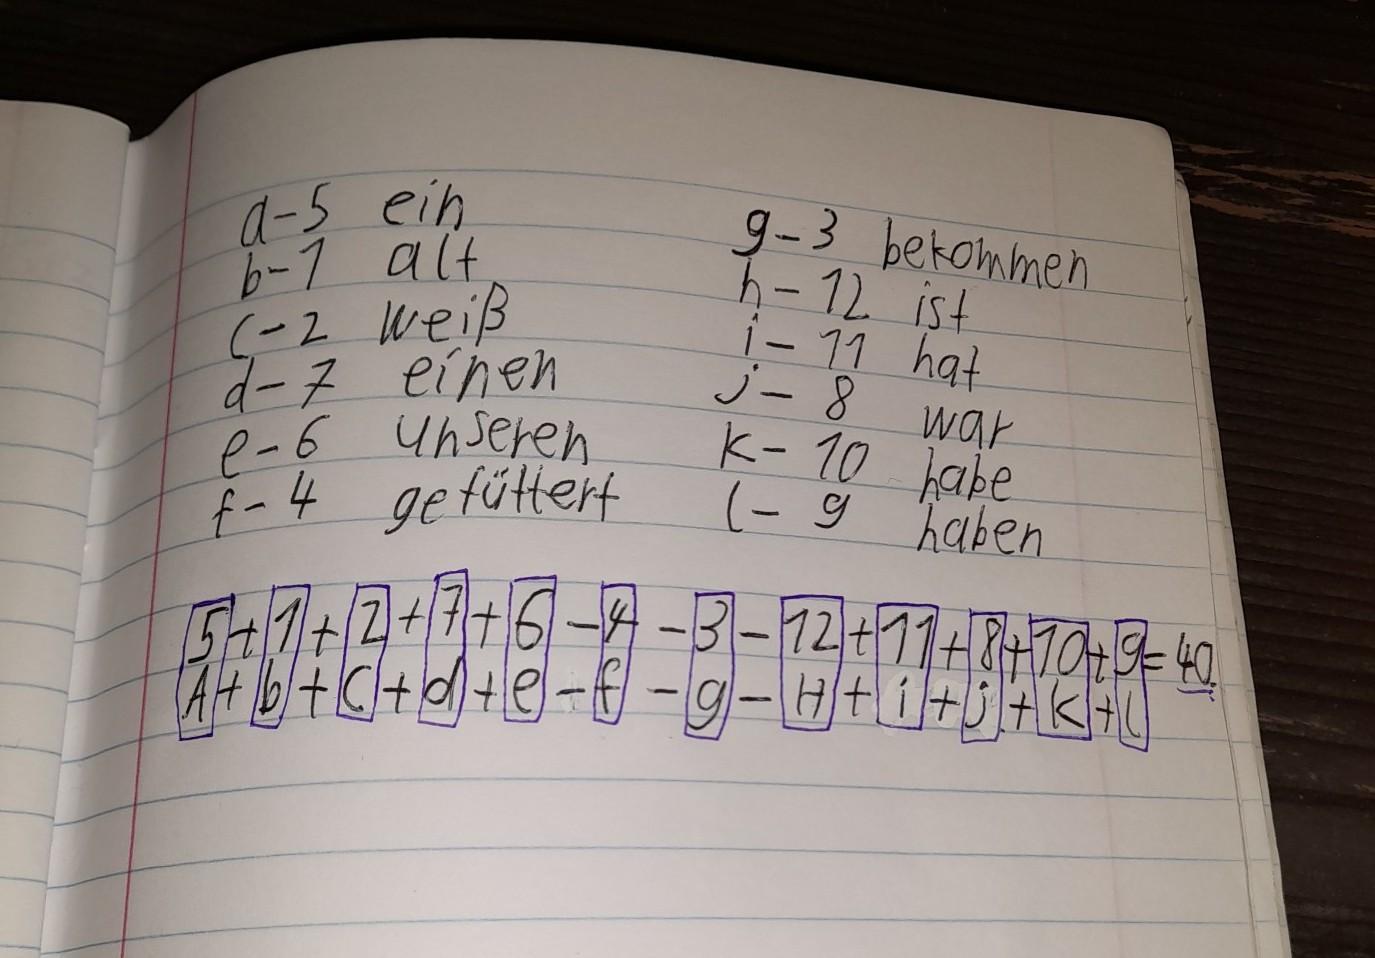 a-5 ein
b-1 alt
c-2 weiß
d-7 einen
e-6 unseren
f-4 gefüttert
g-3 bekommen
h-12 ist
i-11 hat
j-8 war
k-10 habe
l-9 haben
5+1+2+7+6-4-3-12+11+8+10+9=40.
A+b+c+d+e-f-g-H+i+j+k+l